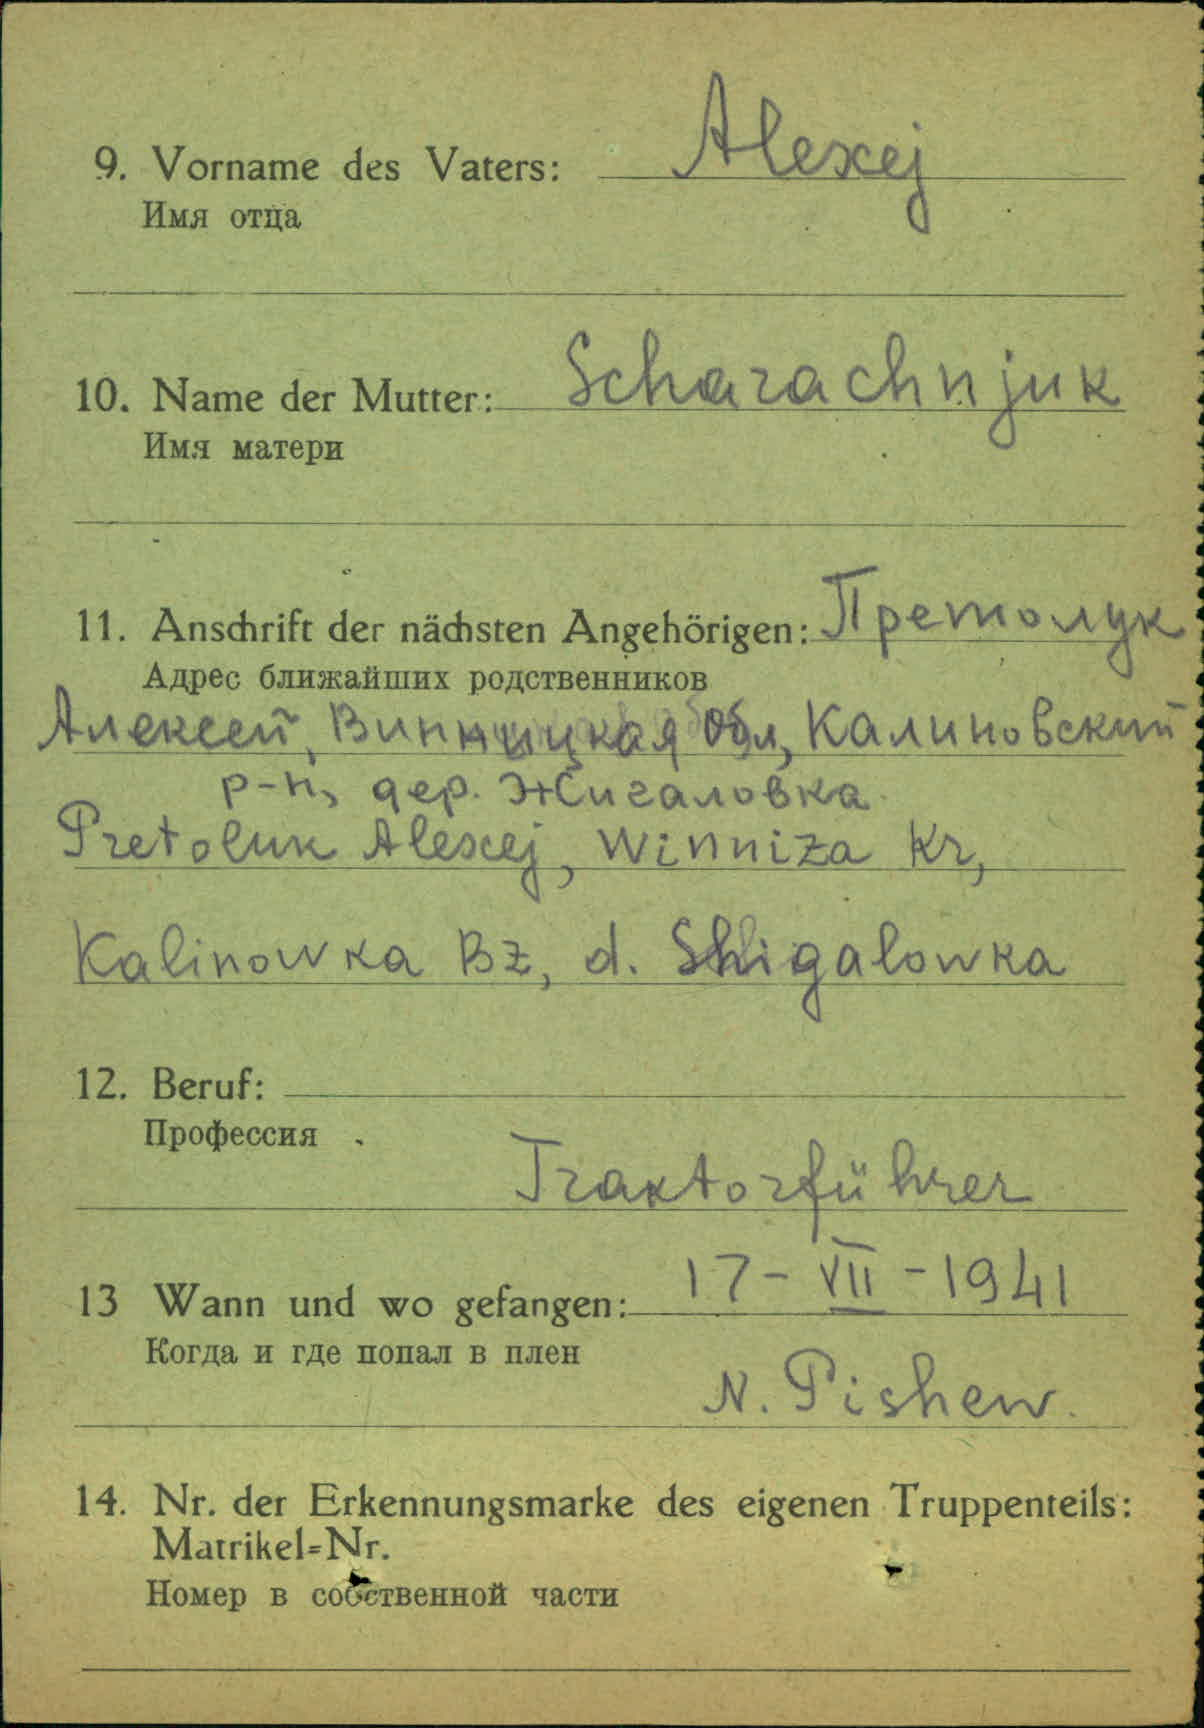 9. Vorname des Vaters: Alexej
Имя отца
10. Name der Mutter: Scharachnjuk
Имя матери
11. Anschrift der nächsten Angehörigen: Претолук
Адрес ближайших родственников
Алексей, Винницкая обл, Калиновский
р-н, дер. Жигаловка
Pretoluk Alexej, Winniza Kr,
Kalinowka Bz, d. Shigalowka
12. Beruf:
Профессия
Traktorführer
13 Wann und wo gefangen: 17-VII-1941
Когда и где попал в плен
N. Pishew.
14. Nr. der Erkennungsmarke des eigenen Truppenteils:
Matrikel=Nr.
Номер в собственной части